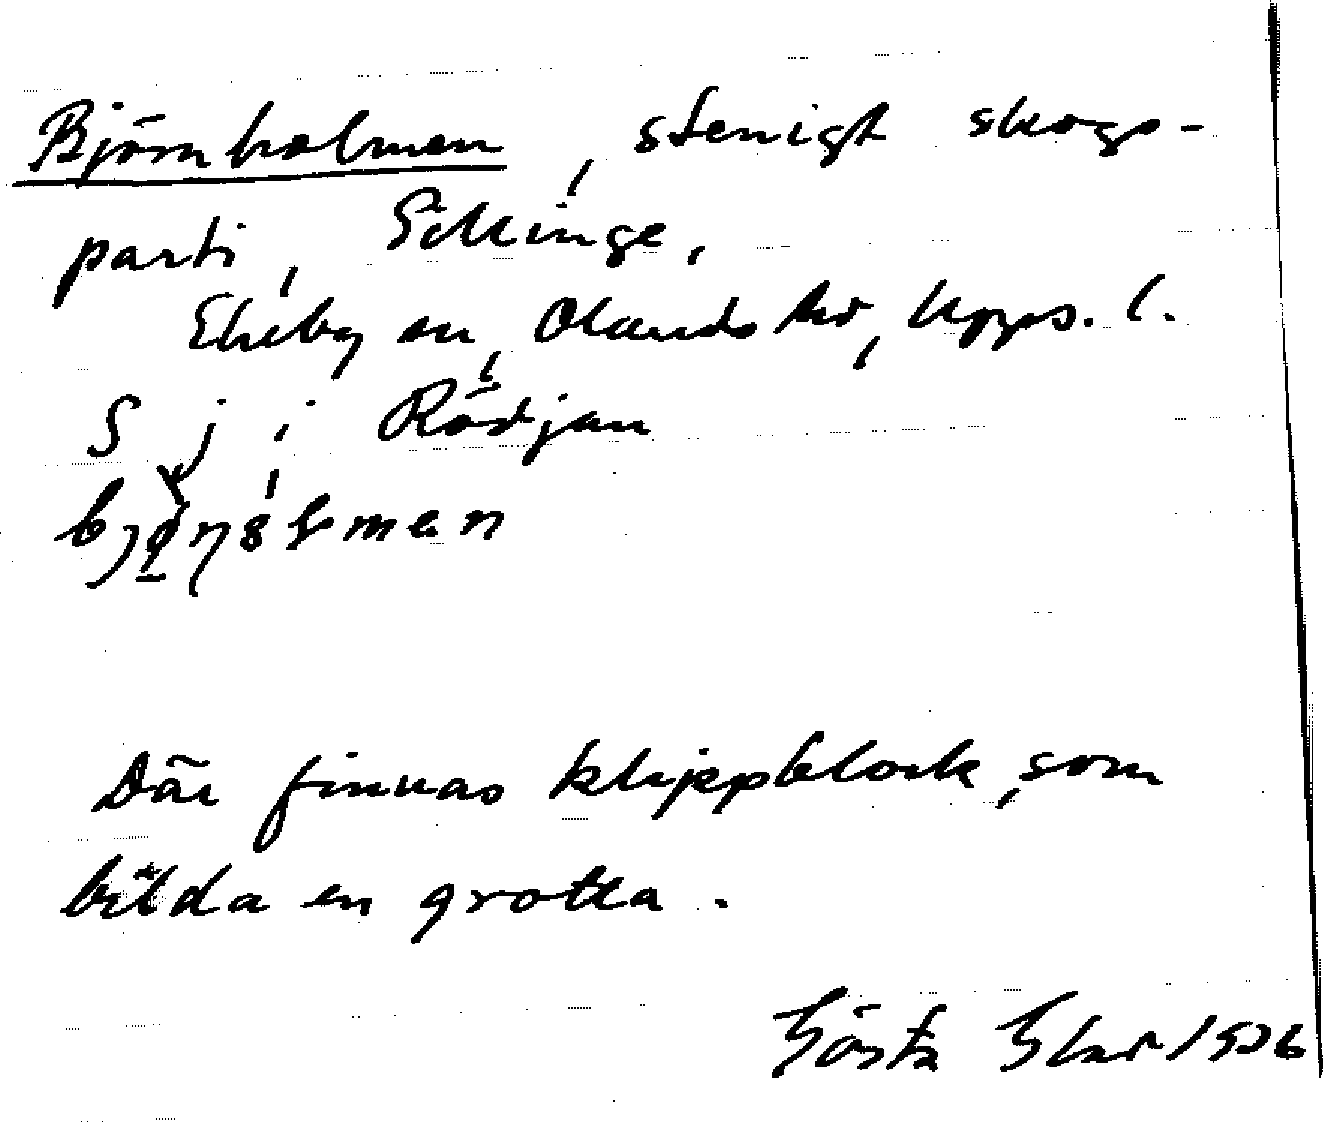 Björnholmen, stenigt skogs-
parti, Söklinge,
Ekeby sn, Olands hd, Upps. l.
S j i Rödjan
Där finnas klippblock, som
bilda en grotta.
Gösta 1926